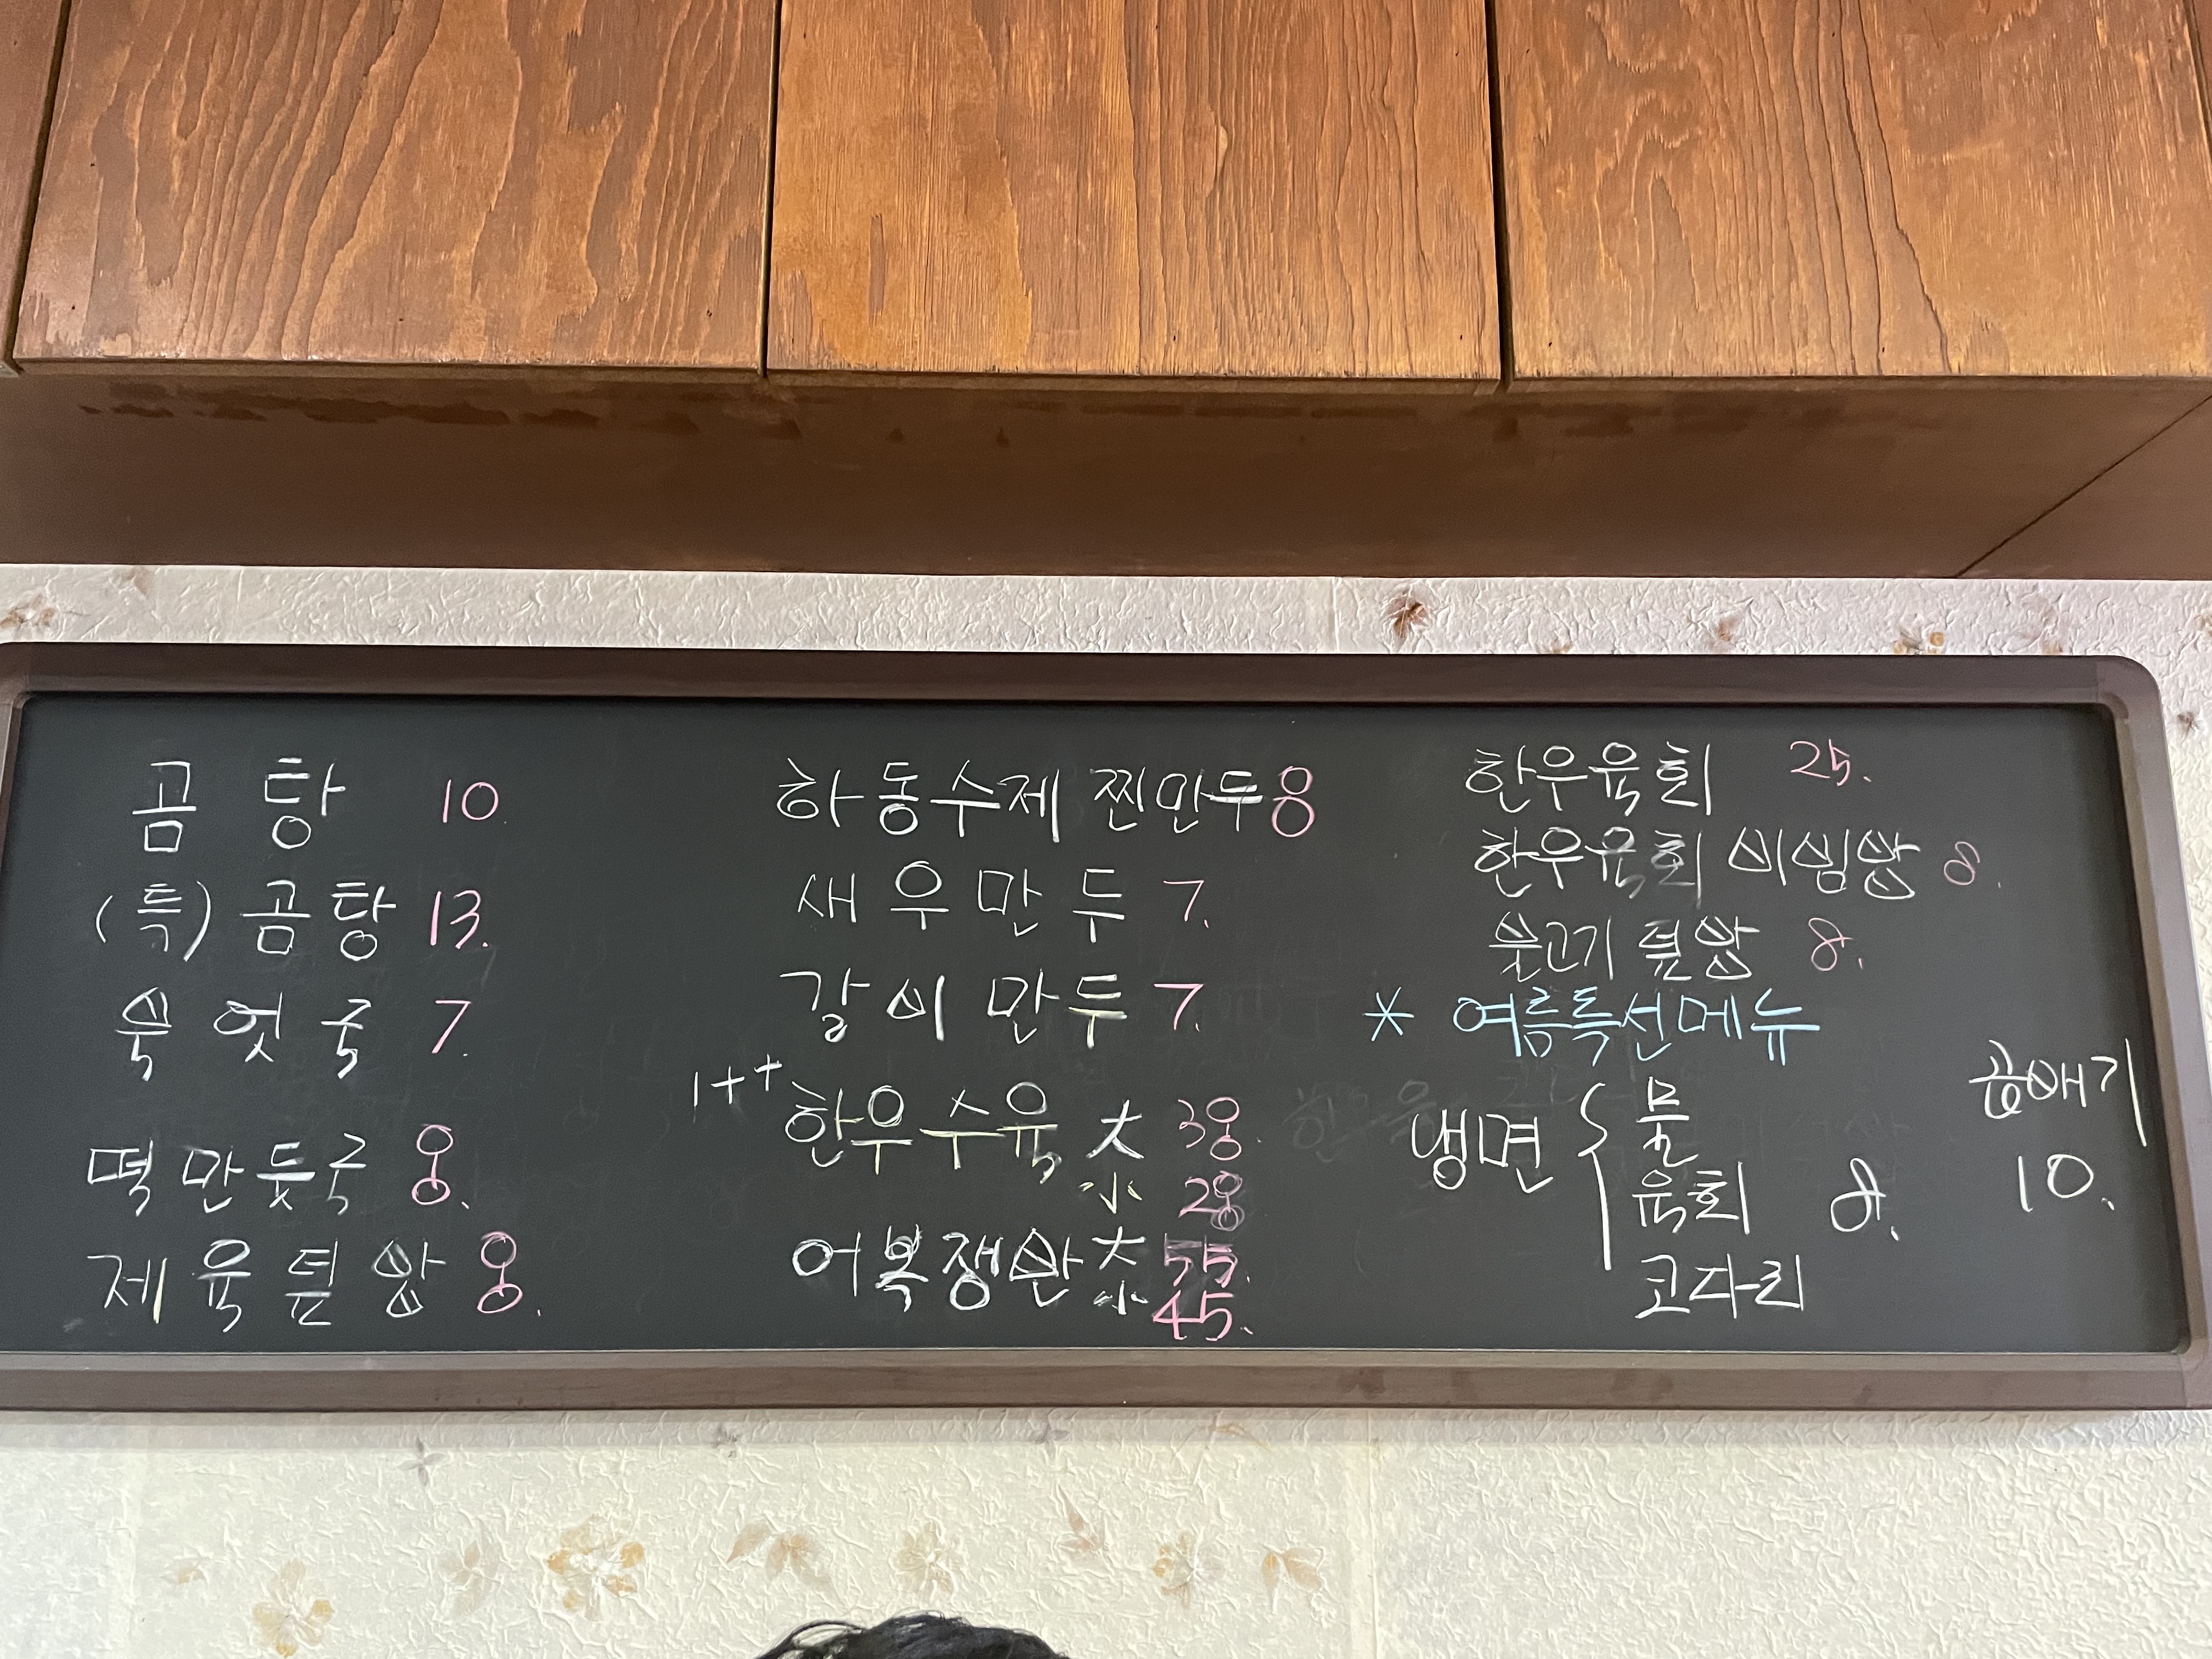 곰탕 10.
(특)곰탕 13.
쑥엇국 7.
떡만듯국 8.
제육덮밥 8.
하동수제 찐만두 8
새우만두 7.
갈비만두 7.
1++ 한우수육 大 38.
小 28
어복쟁반 大 55.
小 45.
한우육회 25.
한우육회 비빔밥 8.
불고기 덮밥 8.
* 여름특선메뉴
냉면 { 물
육회 8.
코다리
곱배기
10.